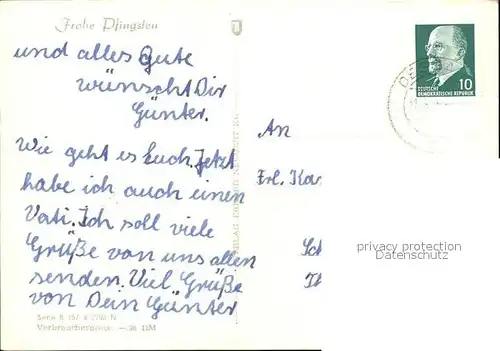 Frohe Pfingsten
und alles Gute
wünscht Dir
Günter.
Wie geht es Euch. Jetzt
habe ich auch einen
Vati. Ich soll viele
Grüße von uns allen
senden. Viel Grüße
von Dein Günter
Serie B
Verbraucherpreis
10
DEUTSCHE
DEMOKRATISCHE REPUBLIK
An
Frl.
privacy protection
Datenschutz